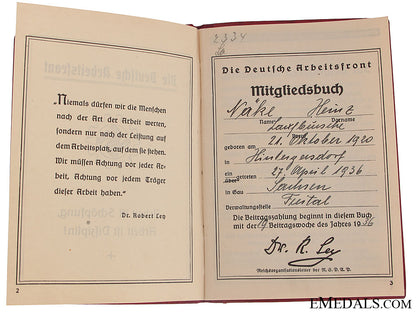 „Niemals dürfen wir die Menschen
nach der Art der Arbeit werten,
sondern nur nach der Leistung auf
dem Arbeitsplatz, auf dem sie stehen.
Wir müssen Achtung vor jeder Ar-
beit, Achtung vor jedem Träger
dieser Arbeit haben."
Dr. Robert Ley
2
Die Deutsche Arbeitsfront
Mitgliedsbuch
Näke Heinz
Name Vorname
Laufbursche
Beruf
geboren am 21. Oktober 1920
in Hintergersdorf
eingetreten 27. April 1936
in Gau Sachsen
Verwaltungsstelle Freital
Die Beitragszahlung beginnt in diesem Buch
mit der 19 Beitragswoche des Jahres 1936
Dr. R. Ley
Reichsorganisationsleiter der N.S.D.A.P.
3
EMEDALS.COM